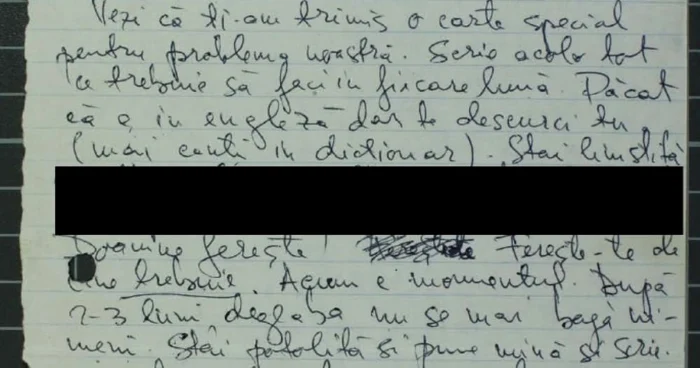 Vezi că ți-am trimis o carte special
pentru problema noastră. Scrie acolo tot
ce trebuie să faci în fiecare lună. Păcat
că e în engleză dar te descurci tu
(mai cauți în dicționar). Stai liniștită
Doamne ferește! Ferește-te de
cine trebuie. Acum e momentul. După
2-3 luni degeaba nu se mai bagă ni-
meni. Stai potolită și pune mîna și scrie.